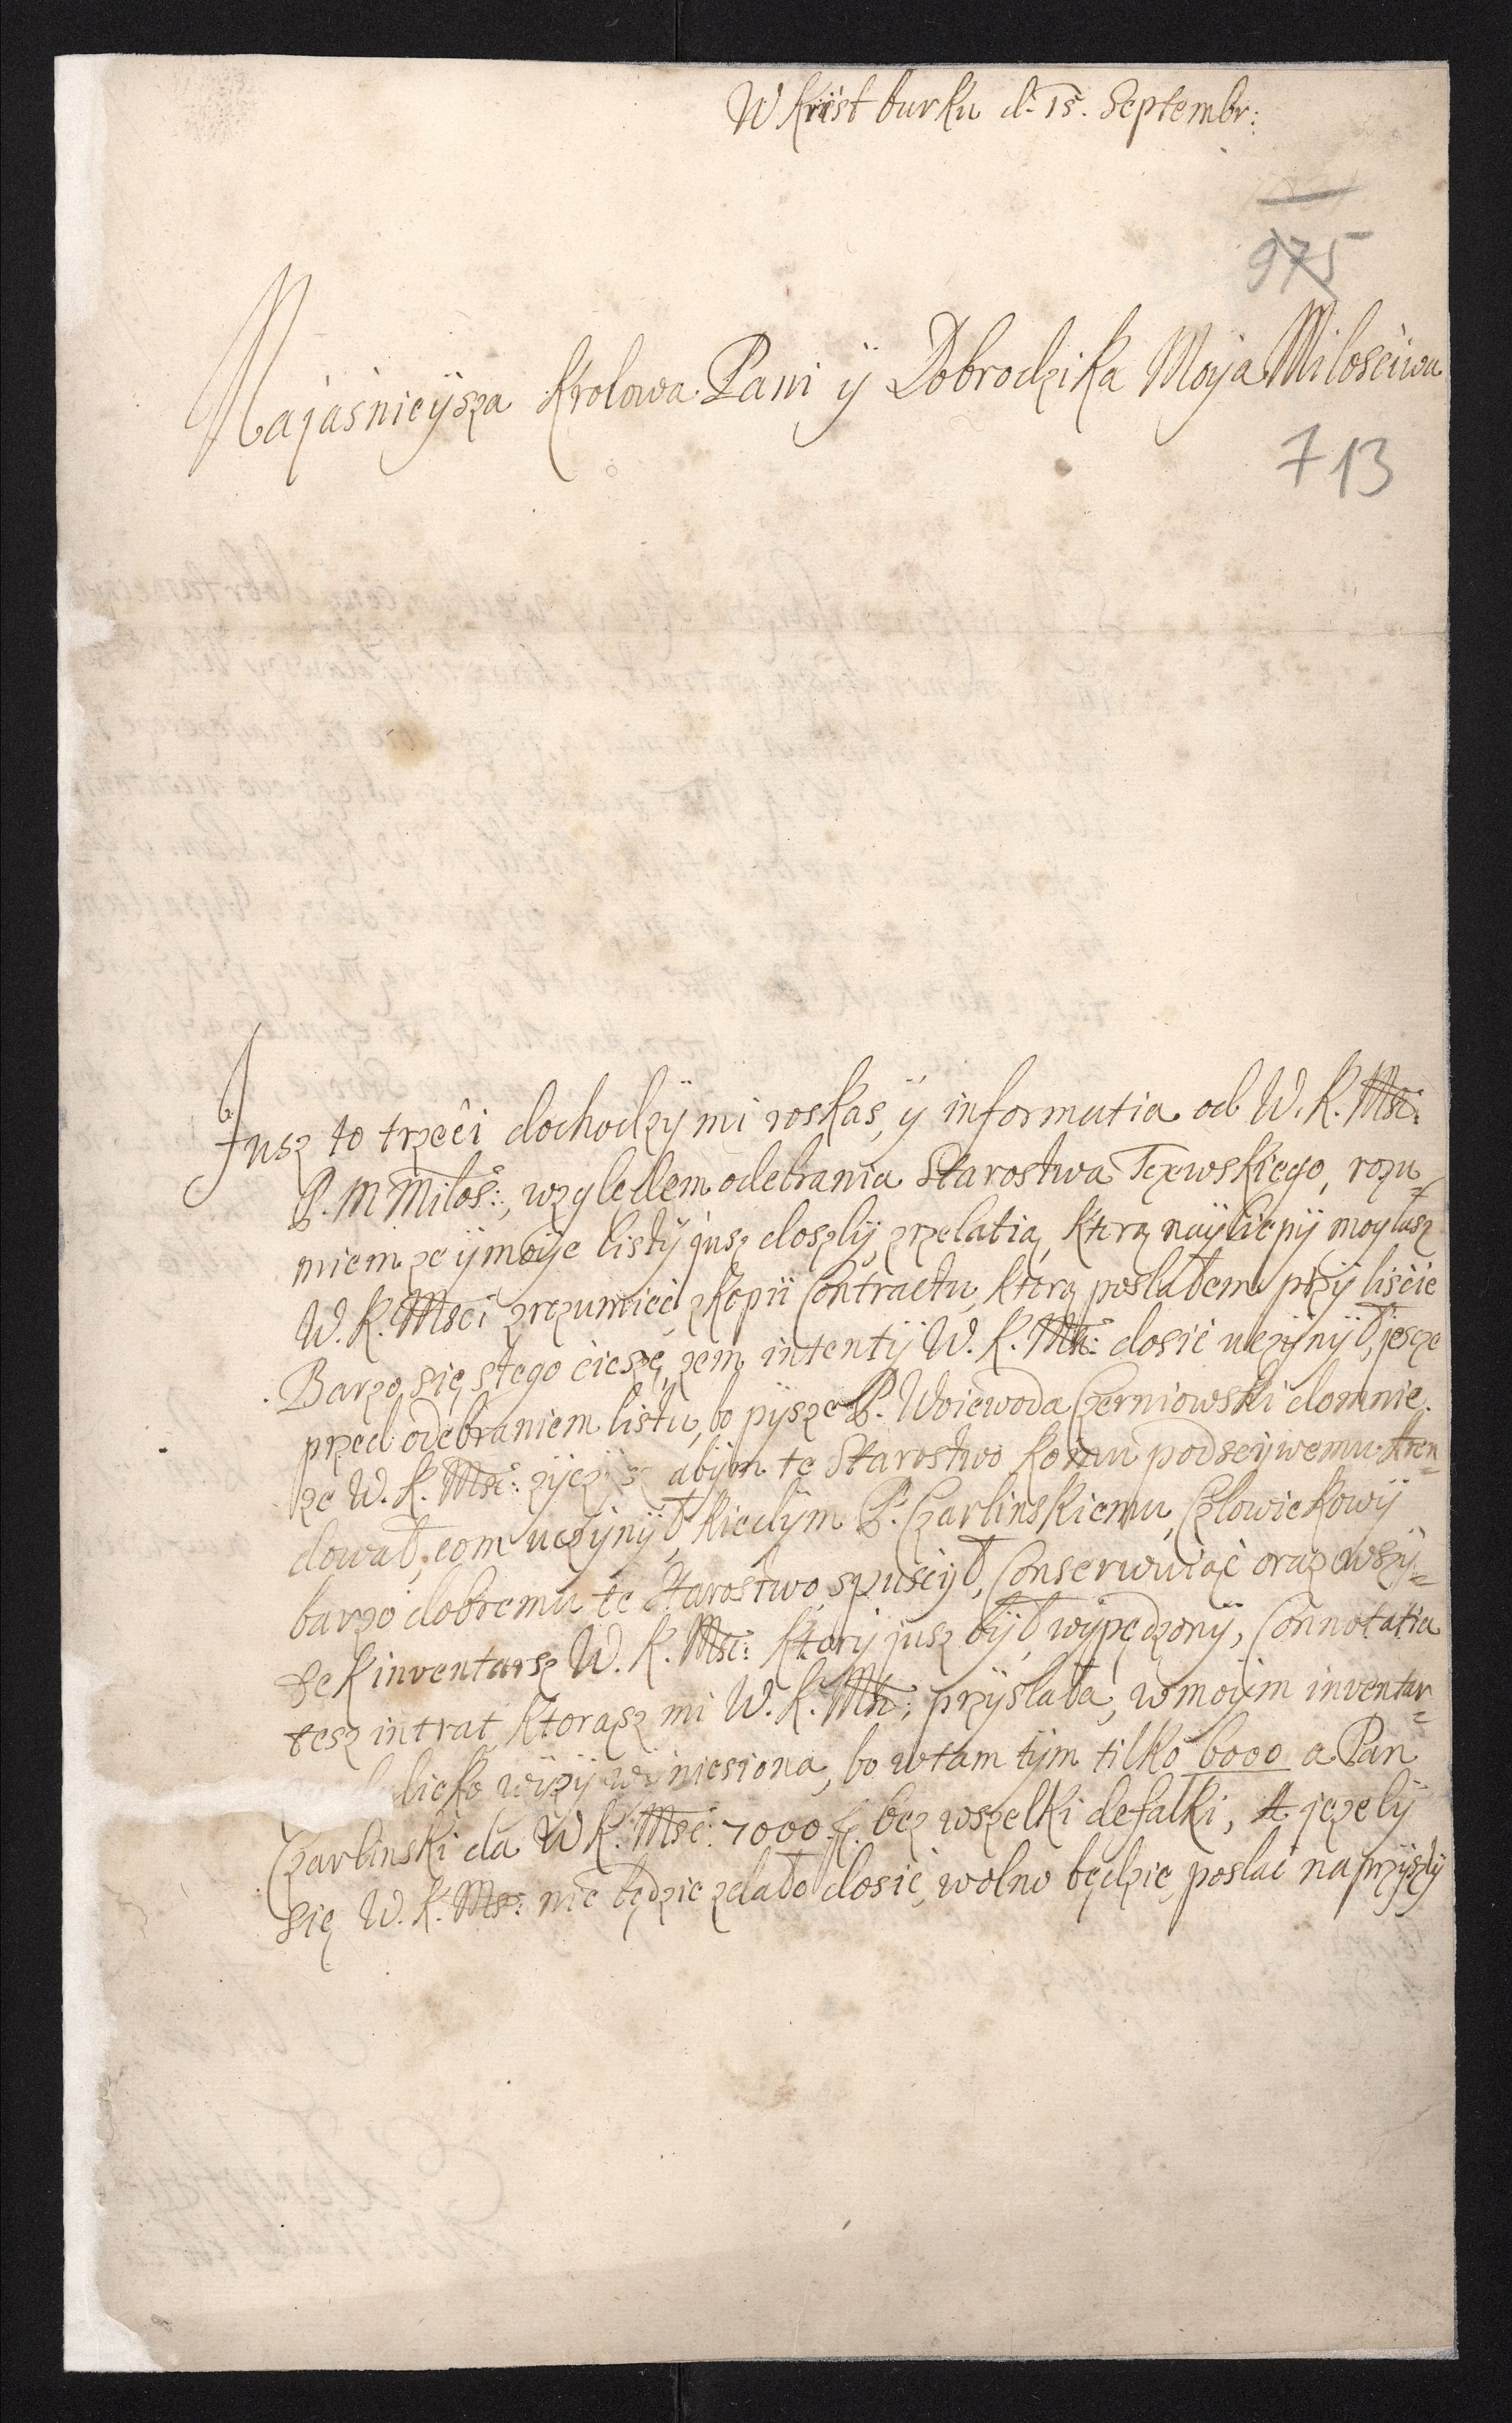 W Kristburku d. 15. Septembr:
975
Najaśnieÿsza Krolowa Pani ÿ Dobrodzika Moÿa Miłościwa
713
Jusz to trzeći dochodzÿ mi roskas, ÿ informatia od W. K. Mśći:
P. M Miłoś:, względem odebrania Starostwa Tczewskiego, rozu=
miem ze ÿ moÿe listÿ jusz doszlÿ, zrzelatią, ktorą naÿliepÿ moglasz
W. K. Mśći zrozumieć, zkopii Contractu, ktorą posłałem przÿ liśćie
Barzo się stego ćieszę, zem intentÿ W. K. Mśći: dosić uczÿnÿł, jescze
przed odebraniem listu, bo pÿsze P. Woiewoda Czerniowski domnie
ze W. K. Mść: zÿczÿ abÿm te Starostwo komu podsciwemu Aren=
dował, com uczÿnÿł, kiedÿm P. Czarlinskiemu, Człowiekowÿ
barzo dobremu te Starostwo spuśćÿł, Conserwuiąć oraz wszÿ=
stek inventarsz W. K. Mść: ktorÿ jusz bÿł wÿpędzonÿ, Connotatia
tesz intrat, ktorąsz mi W. K. Mść: przÿsłała, w moÿm inventar=
lieko wÿzÿ wÿniesiona, bo wtam tÿm tilko 6000 a Pan
Czarlinski da W K. Mść: 7000 f. bez wszelki defalki, A jezelÿ
się W. K. Mść: nie będzie zdało dosić, wolno będzie, posłać na przÿszlÿ